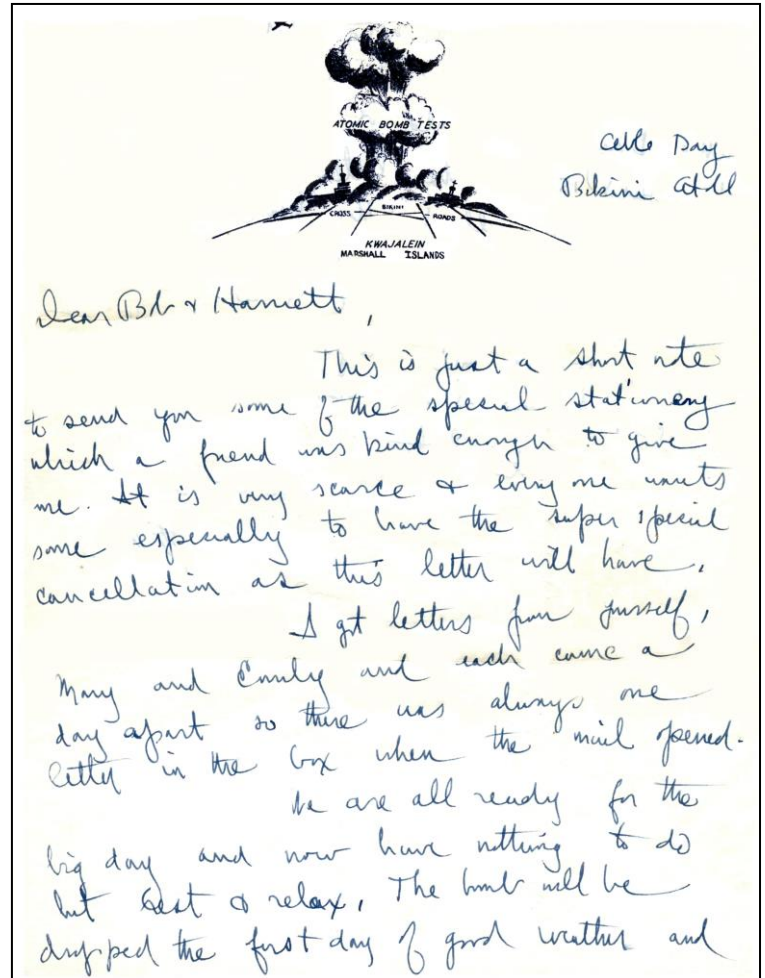 ATOMIC BOMB TESTS
CROSS BIKINI ROADS
KWAJALEIN
MARSHALL ISLANDS
Able Day
Bikini Atoll
Dear Bob & Harriett,
This is just a short note
to send you some of the special stationery
which a friend was kind enough to give
me. It is very scarce & every one wants
some especially to have the super special
cancellation as this letter will have.
I got letters from yourself,
Mary and Emily and each came a
day apart so there was always one
letter in the box when the mail opened.
We are all ready for the
big day and now have nothing to do
but rest & relax. The bomb will be
dropped the first day of good weather and